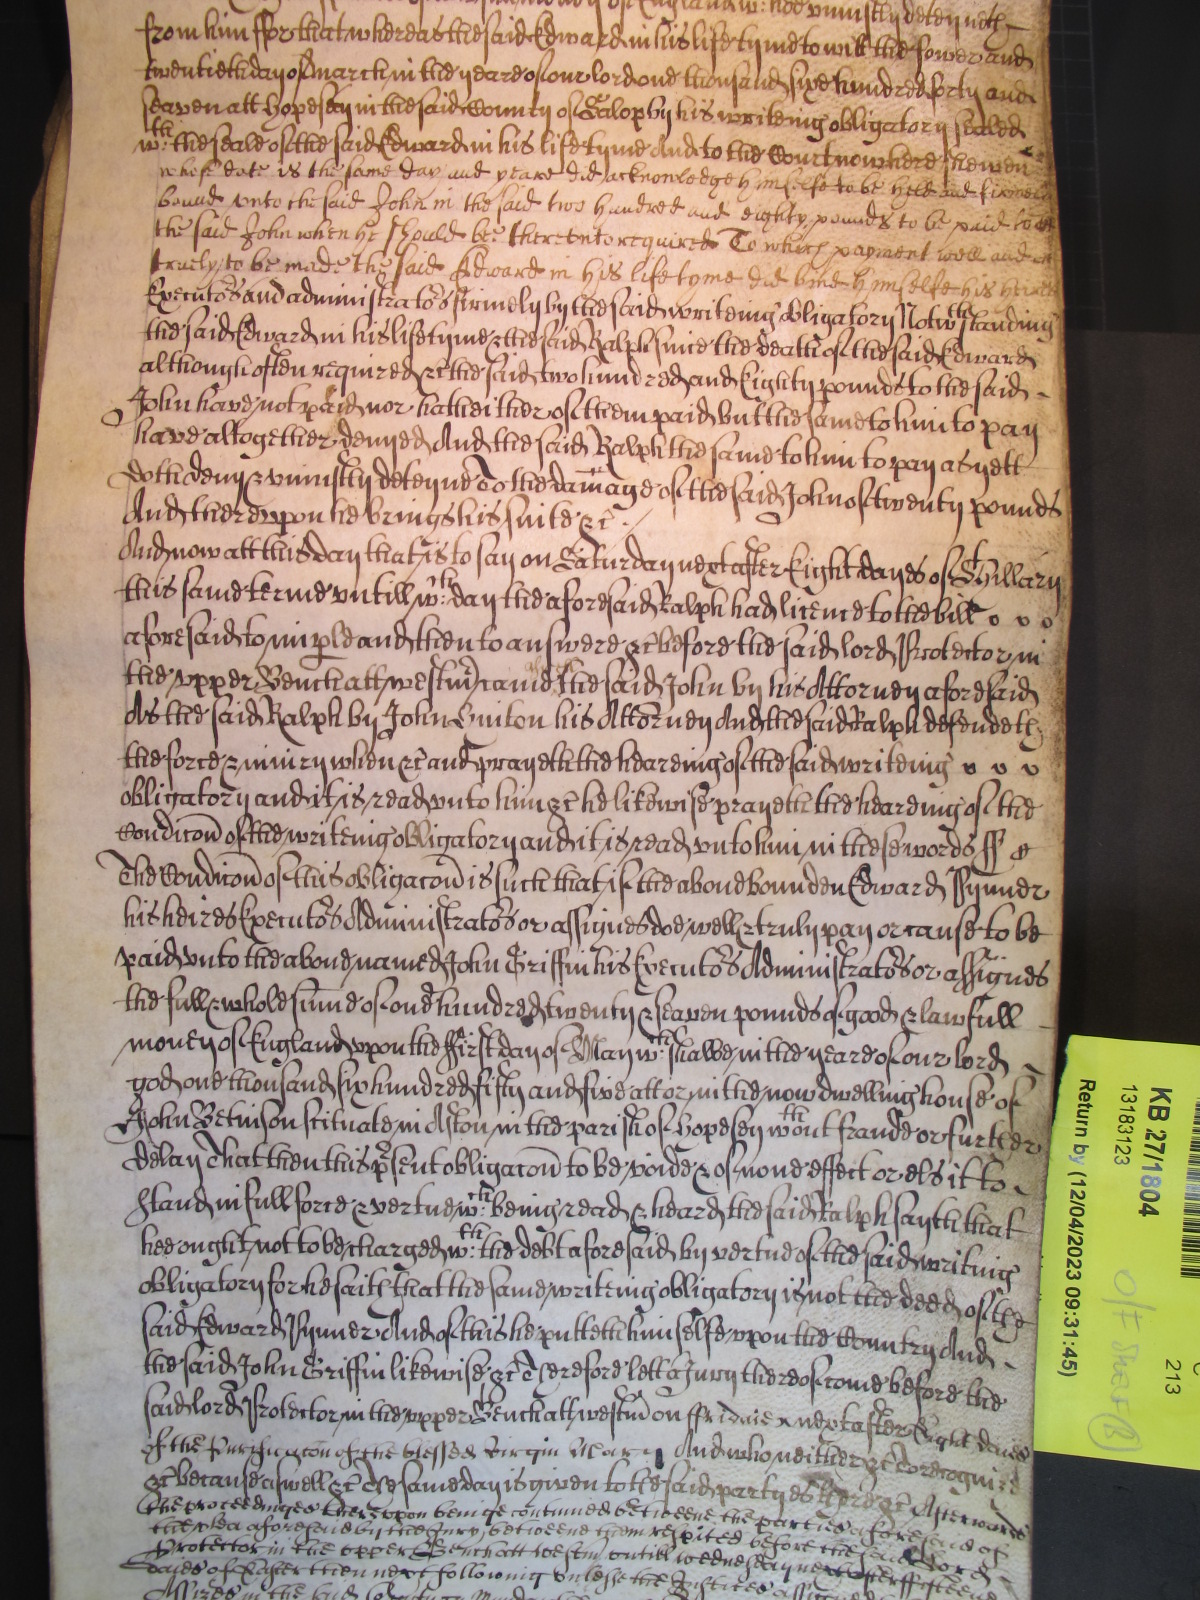 of England w:ch hee uniustly deteyneth
from him ffor that whereas the said Edward in his life tyme to witt the fower and
twentieth day of March in the yeare of our lord one thousand sixe hundred forty and
seaven att Hopesay in the said County of Salop by his writeing obligatory sealed
w:th the seale of the said Edward in his life tyme And to the Court now here shewen
whose date is the same day and yeare did acknowledge himselfe to be held and firmely
bound unto the said John in the said two hundred and eighty pounds to be paid to
the said John when he should bee thereunto required To which payment well and
truely to be made the said Edward in his life tyme did bind himselfe his heires
Executors and administrators firmely by the said writeing obligatory Notwthstanding
the said Edward in his life tyme & the said Ralph since the death of the said Edward
although often required &c the said two hundred and Eighty pounds to the said
John have not paid nor hath either of them paid but the same to him to pay
have altogether denyed And the said Ralph the same to him to pay as yett
doth deny & uniustly deteyne To the damage of the said John of twenty pounds
And thereupon he brings his suite &c
And now att this day that is to say on Saturday next after Eight dayes of St Hillary
this same terme untill w:ch day the aforesaid Ralph had licence to the bill
aforesaid to imple and then to answere &c before the said lord Protector in
the upper Bench att westmr came the said John by his Attorney aforesaid
As the said Ralph by John his Attorney And the said Ralph defendeth
the force & iniury when &c and prayeth the heareing of the said writeing
obligatory and it is read unto him &c he likewise prayeth the heareing of the
Condicon of the writeing obligatory and it is read unto him in these words ff
The Condicon of this obligacon is such that if the above bounden Edward Pynner
his heires Executors Administrators or assignes doe well & truly pay or cause to be
paid unto the above named John Griffin his Executors Administrators or assignes
the full & whole sume of one hundred twenty & seaven pounds of good & lawfull
money of England uppon the first day of May w:ch shalbe in the yeare of our lord
god one thousand six hundred fifty and five att or in the now dwelling house of
John Betinson scituate in Aston in the parish of Hopesey wthout fraude or further
delay That then this psent obligacon to be voide & of none effect or els it to
stand in full force & vertue w:ch being read & heard the said Ralph sayth that
hee ought not to be charged w:th the debt aforesaid by vertue of the said writing
obligatory for he saith that the same writeing obligatory is not the deed of the
said Edward Pynner And of this he putteth himselfe upon the Country And
the said John Griffin likewise &c Therefore lett a Jury thereof come before the
said lord Protector in the upper Bench att westmr on ffridaie next after Eight daies
of the Purificacon of the blessed Virgin Mary And who neither &c to recognize
&c because aswell &c The same day is given to the said partyes there &c Afterwards
the proceedinges thereupon beinge continued betweene the parties aforesaid of
the plea aforesaid by the Jury betweene them respited before the said Lord
Protector in the upper Bench att westmr untill wednesday next after fifteene
daies of Easter then next following unlesse the Justices assigned
Assizes in the
KB 27/1804
13183123
Return by (12/04/2023 09:31:45)
213